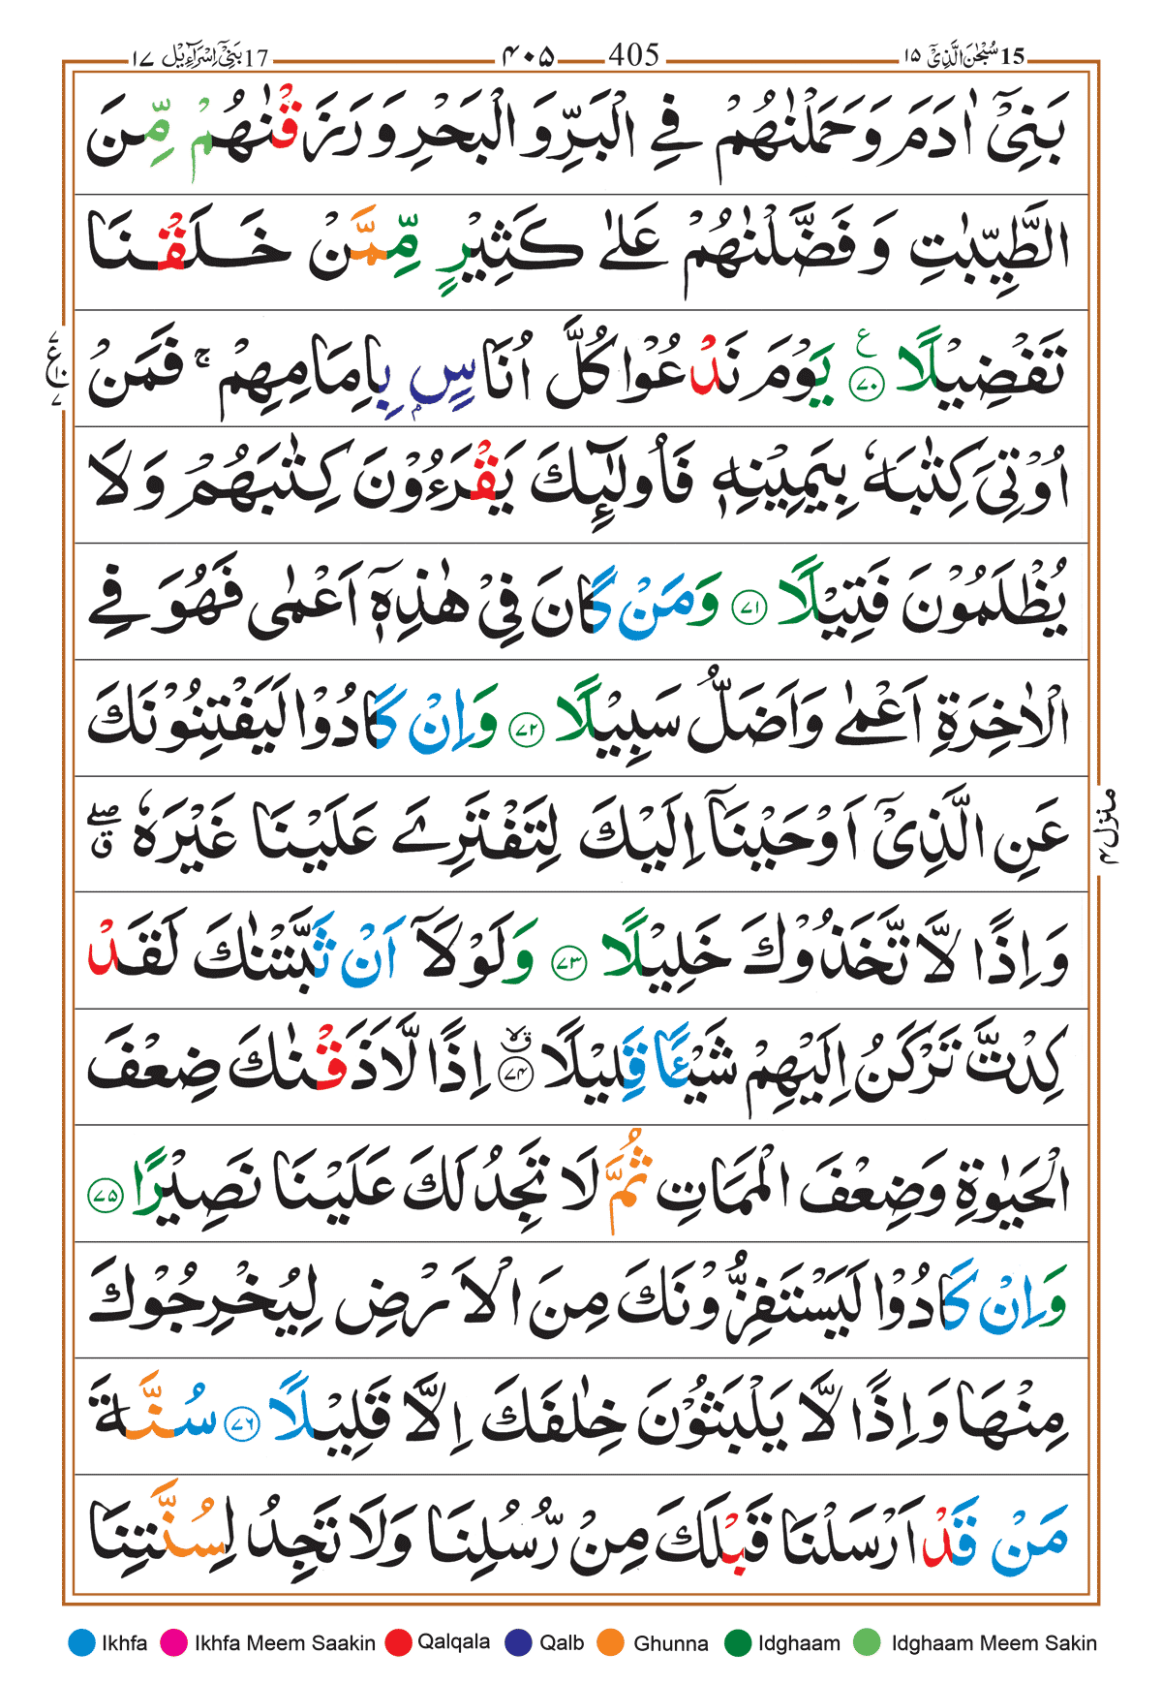 15 سُبْحٰنَ الَّذِیْۤ ۱۵
۴۰۵ 405
17 بَنِیْۤ اِسْرَآءِیْل ۱۷
بَنِیْۤ اٰدَمَ وَ حَمَلْنٰهُمْ فِی الْبَرِّ وَ الْبَحْرِ وَ رَزَقْنٰهُمْ مِّنَ
الطَّیِّبٰتِ وَ فَضَّلْنٰهُمْ عَلٰی كَثِیْرٍ مِّمَّنْ خَلَقْنَا
تَفْضِیْلًا ۧ﴿۷۰﴾ یَوْمَ نَدْعُوْا كُلَّ اُنَاسٍۭ بِاِمَامِهِمْ ۚ فَمَنْ
اُوْتِیَ كِتٰبَهٗ بِیَمِیْنِهٖ فَاُولٰٓىِٕكَ یَقْرَءُوْنَ كِتٰبَهُمْ وَ لَا
یُظْلَمُوْنَ فَتِیْلًا ﴿۷۱﴾ وَ مَنْ كَانَ فِیْ هٰذِهٖۤ اَعْمٰی فَهُوَ فِی
الْاٰخِرَةِ اَعْمٰی وَ اَضَلُّ سَبِیْلًا ﴿۷۲﴾ وَ اِنْ كَادُوْا لَیَفْتِنُوْنَكَ
عَنِ الَّذِیْۤ اَوْحَیْنَاۤ اِلَیْكَ لِتَفْتَرِیَ عَلَیْنَا غَیْرَهٗ ۖۗ
وَ اِذًا لَّا تَّخَذُوْكَ خَلِیْلًا ﴿۷۳﴾ وَ لَوْ لَاۤ اَنْ ثَبَّتْنٰكَ لَقَدْ
كِدْتَّ تَرْكَنُ اِلَیْهِمْ شَیْـًٔا قَلِیْلًا ﴿۷۴﴾ ۗۙ اِذًا لَّاَذَقْنٰكَ ضِعْفَ
الْحَیٰوةِ وَ ضِعْفَ الْمَمَاتِ ثُمَّ لَا تَجِدُ لَكَ عَلَیْنَا نَصِیْرًا ﴿۷۵﴾
وَ اِنْ كَادُوْا لَیَسْتَفِزُّوْنَكَ مِنَ الْاَرْضِ لِیُخْرِجُوْكَ
مِنْهَا وَ اِذًا لَّا یَلْبَثُوْنَ خِلٰفَكَ اِلَّا قَلِیْلًا ﴿۷۶﴾ سُنَّةَ
مَنْ قَدْ اَرْسَلْنَا قَبْلَكَ مِنْ رُّسُلِنَا وَ لَا تَجِدُ لِسُنَّتِنَا
۷ ع ۱۰ ۷
منزل ۴
Ikhfa Ikhfa Meem Saakin Qalqala Qalb Ghunna Idghaam Idghaam Meem Sakin